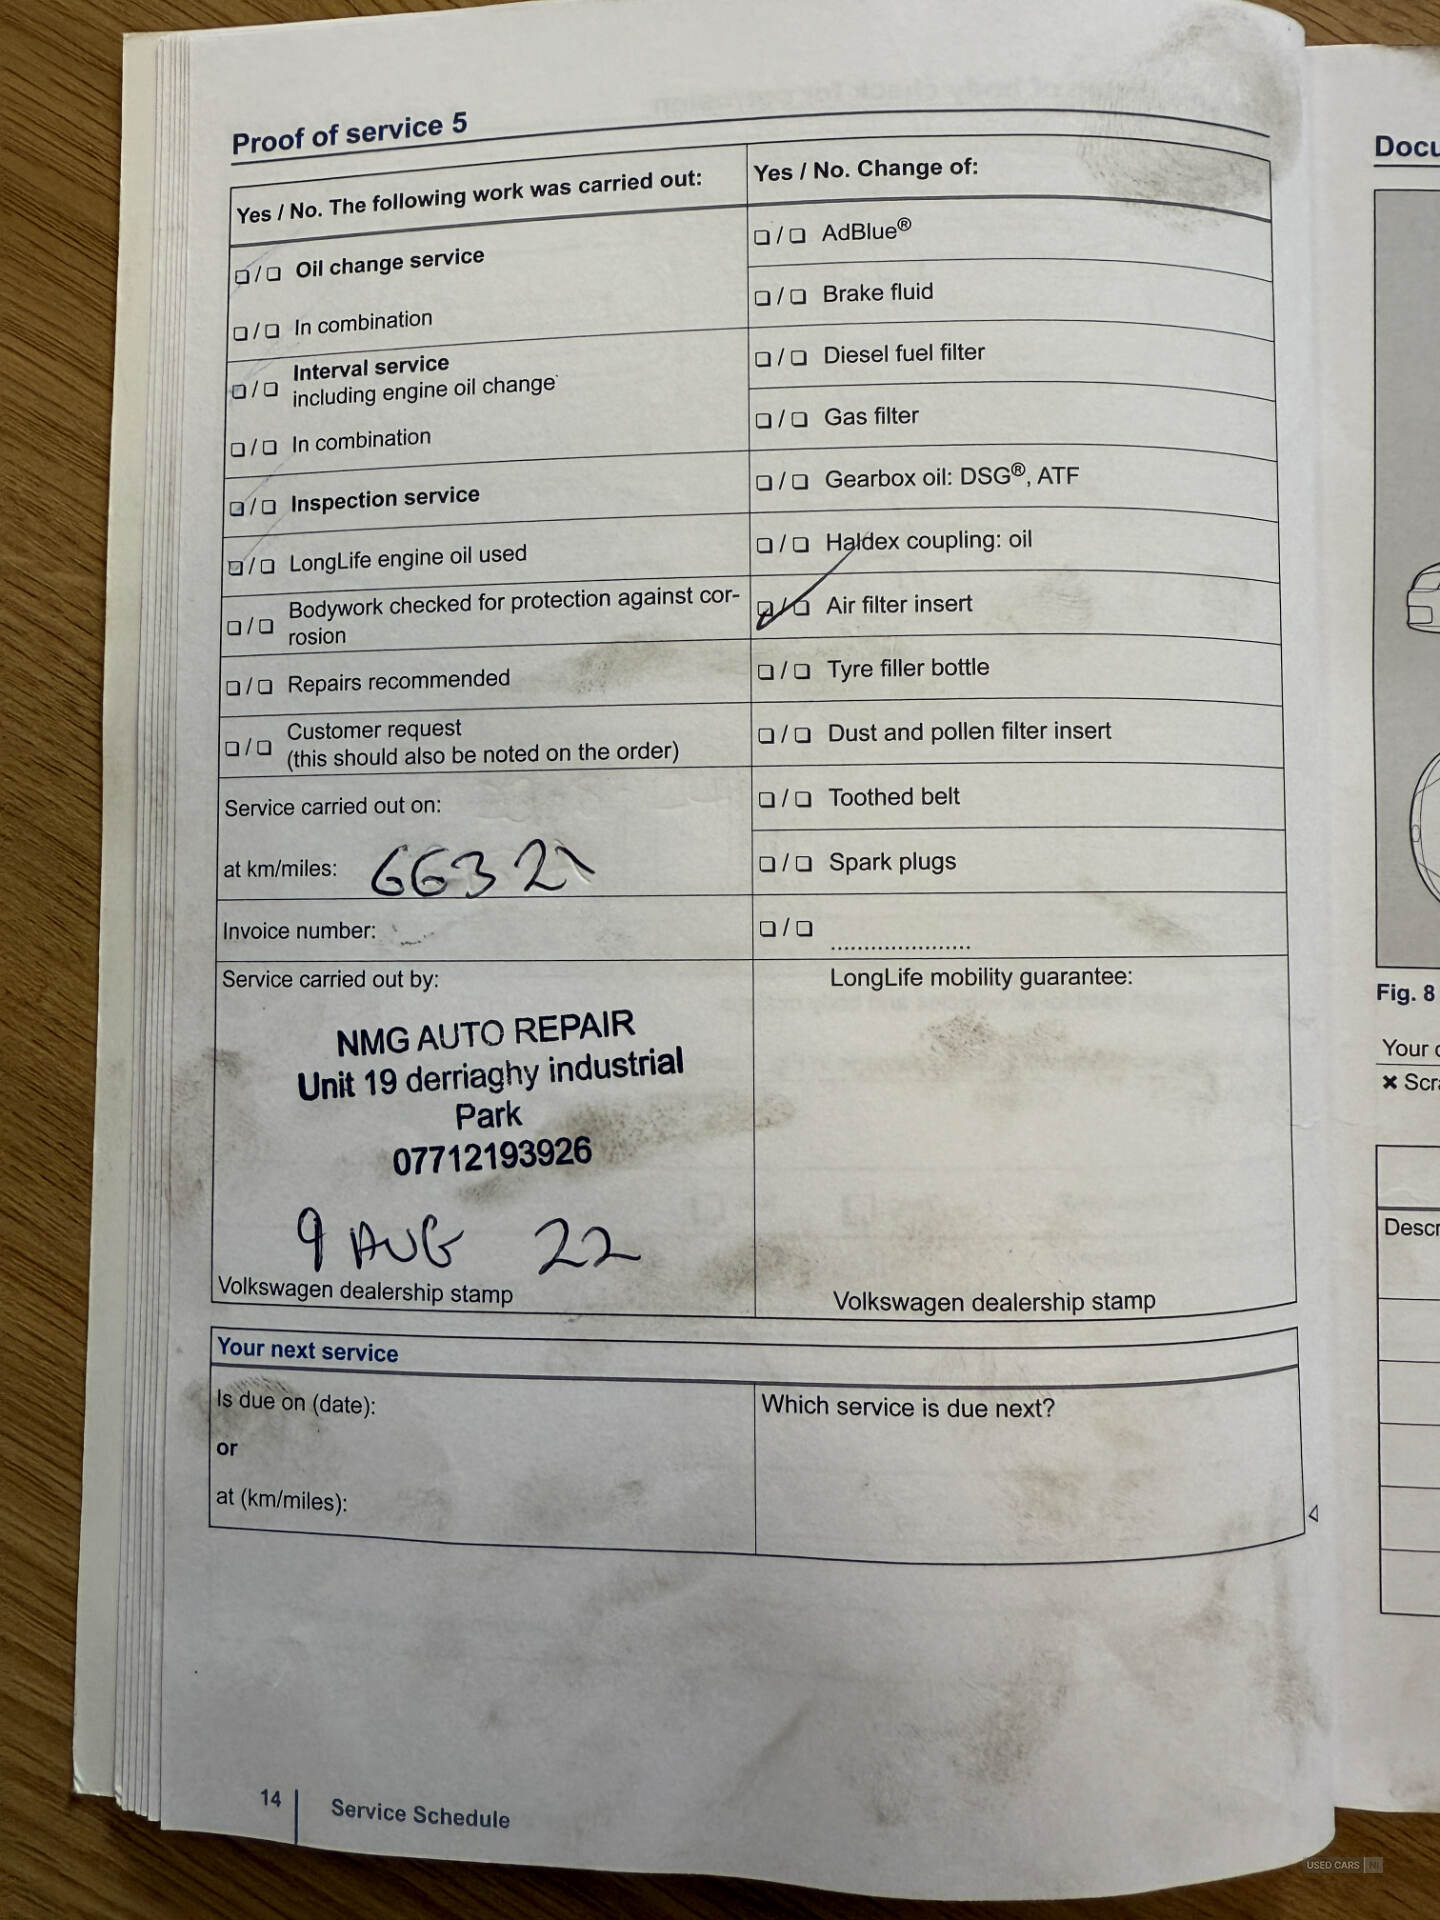 Proof of service 5
Yes / No. The following work was carried out:
❏ / ❏ Oil change service
❏ / ❏ In combination
❏ / ❏ Interval service
including engine oil change
❏ / ❏ In combination
❏ / ❏ Inspection service
❏ / ❏ LongLife engine oil used
❏ / ❏ Bodywork checked for protection against cor-
rosion
❏ / ❏ Repairs recommended
❏ / ❏ Customer request
(this should also be noted on the order)
Service carried out on:
at km/miles: 66321
Invoice number:
Service carried out by:
NMG AUTO REPAIR
Unit 19 derriaghy industrial
Park
07712193926
9 AUG 22
Volkswagen dealership stamp
Yes / No. Change of:
❏ / ❏ AdBlue®
❏ / ❏ Brake fluid
❏ / ❏ Diesel fuel filter
❏ / ❏ Gas filter
❏ / ❏ Gearbox oil: DSG®, ATF
❏ / ❏ Haldex coupling: oil
❏ / ❏ Air filter insert
❏ / ❏ Tyre filler bottle
❏ / ❏ Dust and pollen filter insert
❏ / ❏ Toothed belt
❏ / ❏ Spark plugs
❏ / ❏ .....................
LongLife mobility guarantee:
Volkswagen dealership stamp
Your next service
Is due on (date):
or
at (km/miles):
Which service is due next?
14 Service Schedule
Docu
Fig. 8
Your
Scr
Descr
USED CARS NI